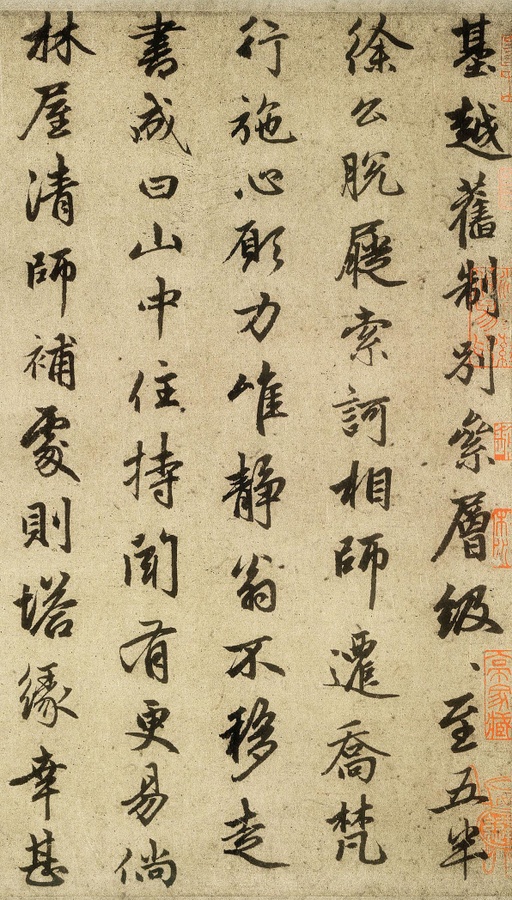 基越舊制別絫層級、至五半
徐公脫屣索訶相師遷喬梵
行施心願力唯靜翁不移走
書成曰山中住持聞有更易倘
林屋清師補處則塔緣幸甚